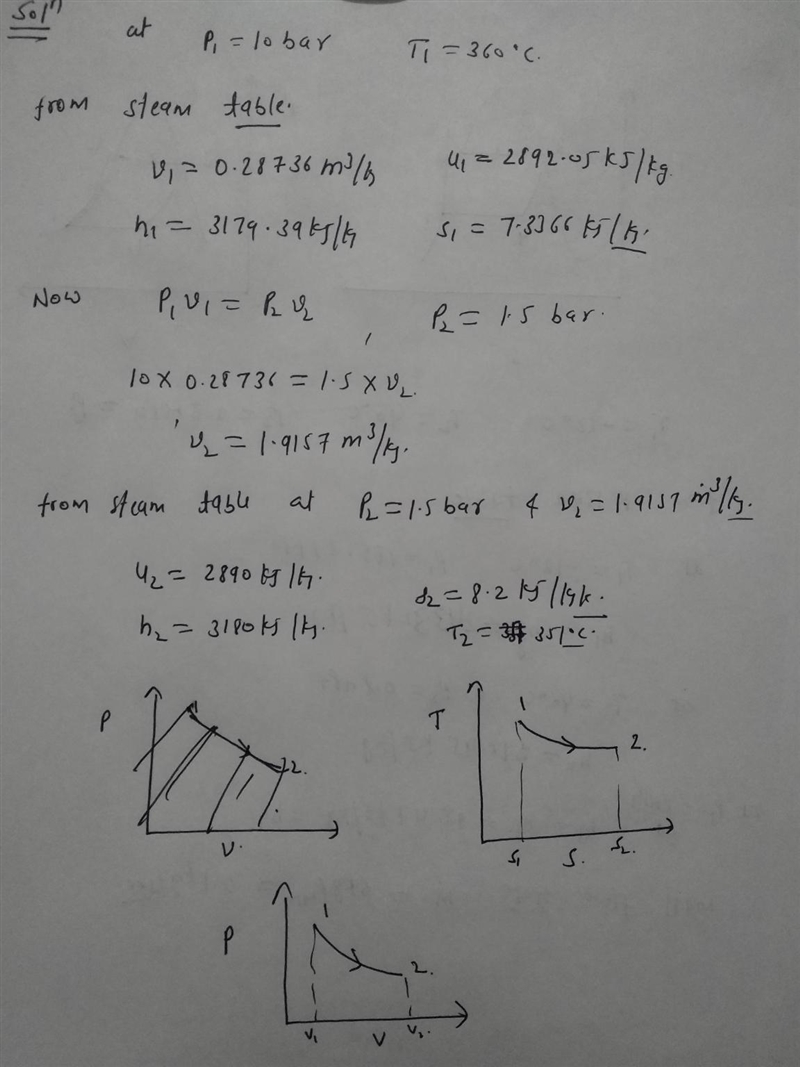 Solⁿ
at P₁ = 10 bar T₁ = 360°C.
from steam table.
v₁ = 0.28736 m³/kg u₁ = 2892.05 kJ/kg.
h₁ = 3179.39 kJ/kg s₁ = 7.3366 kJ/kg.
Now P₁v₁ = P₂v₂ , P₂ = 1.5 bar.
10 × 0.28736 = 1.5 × v₂.
v₂ = 1.9157 m³/kg.
from steam table at P₂ = 1.5 bar & v₂ = 1.9157 m³/kg.
u₂ = 2890 kJ/kg. s₂ = 8.2 kJ/kgk.
h₂ = 3180 kJ/kg. T₂ = 351°C.
P 1 2. V.
T 1 2. s₁ S. s₂.
P 1 2. v₁ V v₂.